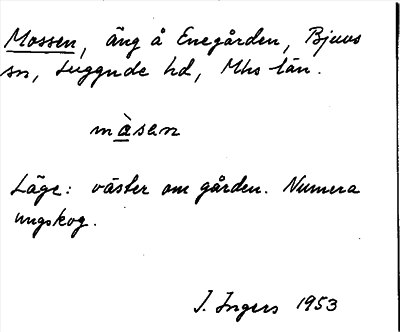 Mossen, äng å Enegården, Bjuvs
sn, Luggude hd, Mhs län.
màsen
Läge: väster om gården. Numera
ungskog.
I. Ingers 1953